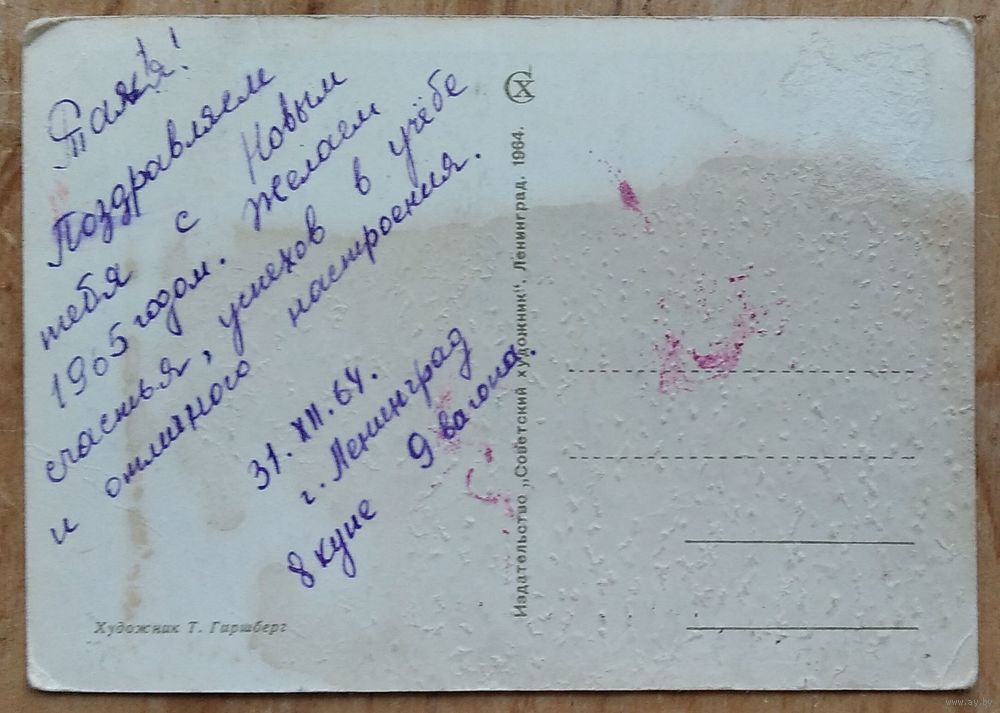 Таня!
Поздравляем
тебя с Новым
1965 годом. Желаем
счастья, успехов в учёбе
и отличного настроения.
31. XII. 64.
г. Ленинград
8 купе 9 вагона.
Художник Т. Гиршберг
Издательство „Советский художник“. Ленинград. 1964.
СХ
www.ay.by